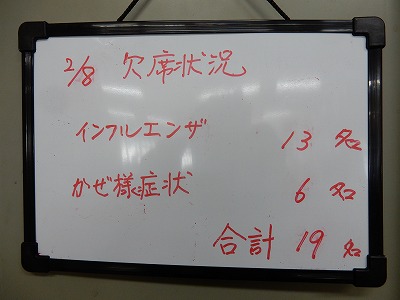 2/8 欠席状況
インフルエンザ 13名
かぜ様症状 6名
合計 19名